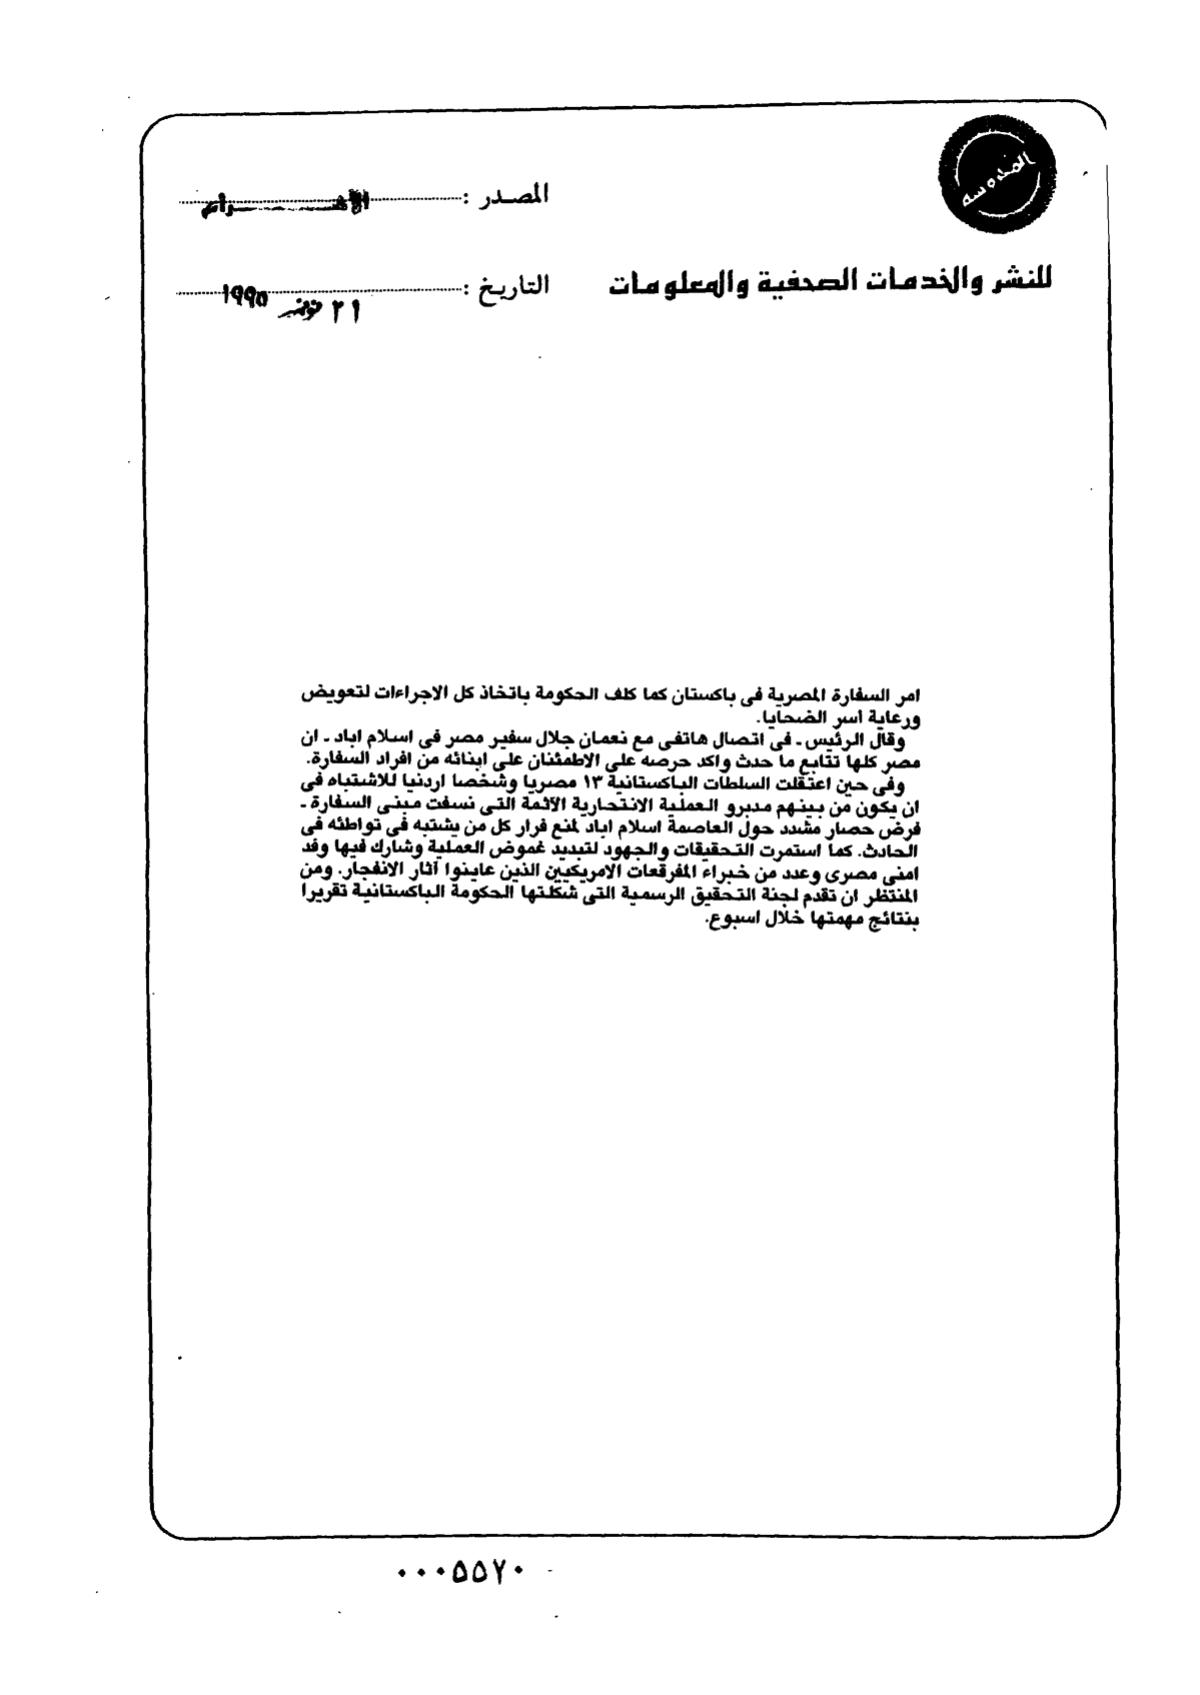 المصدر : الأهرام
للنشر والخدمات الصحفية والمعلومات
التاريخ : ٢١ نوفمبر ١٩٩٥
امر السفارة المصرية فى باكستان كما كلف الحكومة باتخاذ كل الاجراءات لتعويض
ورعاية اسر الضحايا.
وقال الرئيس ـ فى اتصال هاتفى مع نعمان جلال سفير مصر فى اسلام اباد ـ ان
مصر كلها تتابع ما حدث واكد حرصه على الاطمئنان على ابنائه من افراد السفارة.
وفى حين اعتقلت السلطات الباكستانية ١٣ مصريا وشخصا اردنيا للاشتباه فى
ان يكون من بينهم مدبرو العملية الانتحارية الآثمة التى نسفت مبنى السفارة ـ
فرض حصار مشدد حول العاصمة اسلام اباد لمنع فرار كل من يشتبه فى تواطئه فى
الحادث. كما استمرت التحقيقات والجهود لتبديد غموض العملية وشارك فيها وفد
امنى مصرى وعدد من خبراء المفرقعات الامريكيين الذين عاينوا آثار الانفجار. ومن
المنتظر ان تقدم لجنة التحقيق الرسمية التى شكلتها الحكومة الباكستانية تقريرا
بنتائج مهمتها خلال اسبوع.
٠٠٠٥٥٧٠